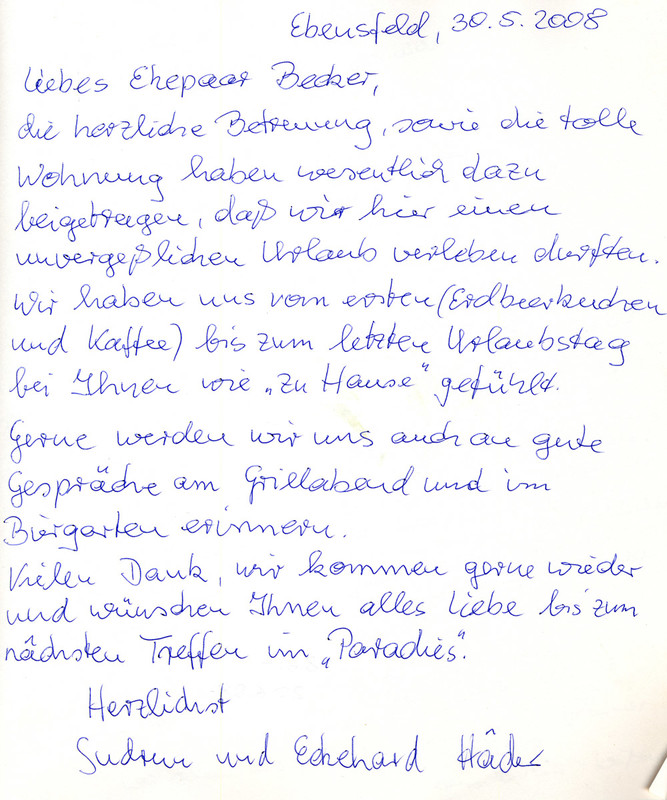 Ebensfeld, 30.5.2008
Liebes Ehepaar Becker,
die herzliche Betreuung, sowie die tolle
Wohnung haben wesentlich dazu
beigetragen, daß wir hier einen
unvergeßlichen Urlaub verleben durften.
Wir haben uns vom ersten (Erdbeerkuchen
und Kaffee) bis zum letzten Urlaubstag
bei Ihnen wie „zu Hause“ gefühlt.
Gerne werden wir uns auch an gute
Gespräche am Grillabend und im
Biergarten erinnern.
Vielen Dank, wir kommen gerne wieder
und wünschen Ihnen alles Liebe bis zum
nächsten Treffen im „Paradies“.
Herzlichst
und Eckehard